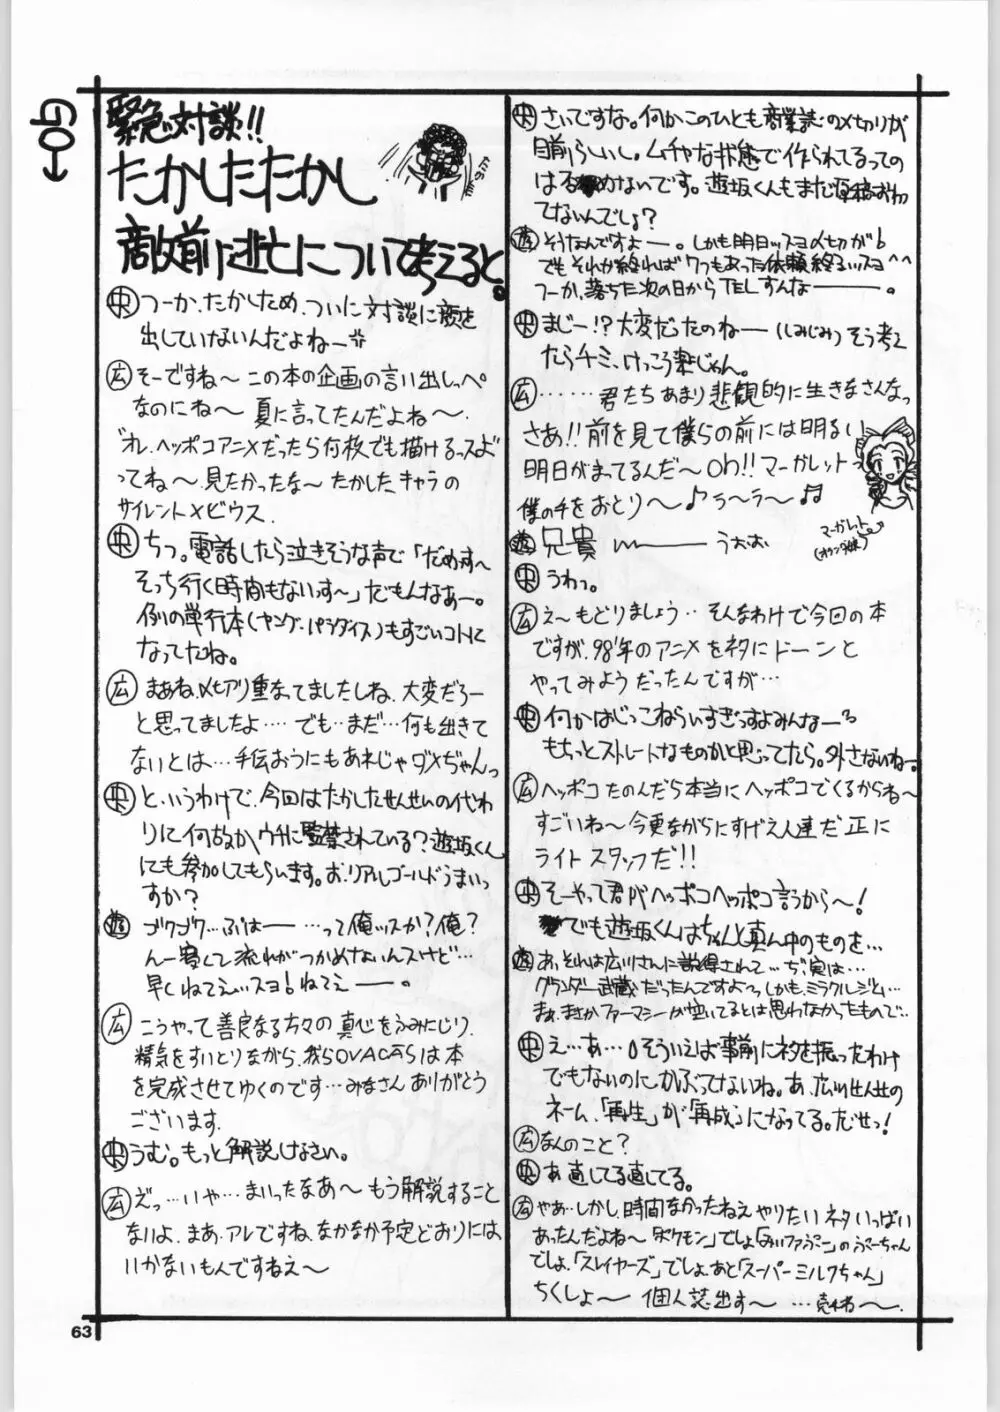 GO→
緊急対談!!
たかしたたかし
敵前逃亡について考えると。
央 つーか、たかしため、ついに対談に顔を
出していないんだよねー
広 そーですね〜 この本の企画の言い出しっぺ
なのにね〜 夏に言ってたんだよね〜。
"オレ、ヘッポコアニメだったら何枚でも描けるっスよ"
ってね〜 見たかったな〜 たかしたキャラの
サイレントメビウス.
央 ちっ。電話したら泣きそうな声で「だめっす〜
そっち行く時間もないっす〜」だもんなあー。
例の単行本(ヤング・パラダイス)もすごいコトに
なってたね。
広 まあね、〆切り重なってましたしね、大変だろー
と思ってましたよ‥‥ でも‥まだ‥何も出きて
ないとは‥‥手伝おうにもあれじゃダメぢゃんっ
央 というわけで、今回はたかしたせんせいの代わ
りに何故かウチに監禁されている?遊坂くん
にも参加してもらいます。お、リアルゴールドうまいっ
すか?
遊 ゴクゴク…ぷはー ‥‥って俺ッスか?俺?
んー 寒くて流れがつかめないんスけど…
早くねてえッスヨ!ねてえー。
広 こうやって善良なる方々の真心をふみにじり、
精気をすいとりながら、我らOVACASは本
を完成させてゆくのです…みなさんありがとう
ございます.
央 うむ。もっと解説しなさい。
広 えっ…いや…まいったなあ〜 もう解説すること
ないよ. まあ、アレですね、なかなか予定どおりには
いかないもんですねえ〜
央 さいですな。何かこのひとも商業誌の〆切りが
目前らしいし。ムチャな状態で作られてるっての
は否めないです。遊坂くんもまだ原稿おわっ
てないんでしょ?
遊 そうなんですよー。しかも明日ッスヨ〆切が
でもそれが終れば7つもあった依頼終るッスヨ^^
つーか、落ちた次の日からTELすんなー。
央 まじー!?大変だったのねー(しみじみ)そう考え
たらチミ、けっこう楽じゃん。
広 ‥‥‥君たちあまり悲観的に生きなさんなっ
さあ!!前を見て僕らの前には明るい
明日がまってるんだ〜Oh!!マーガレットっ
僕の手をおとり〜♪ラ〜ラ〜♫
マーガレット
(オランダ娘)
遊 兄貴 ー うぉぉ
央 うわっ。
広 え〜もどりましょう‥そんなわけで今回の本
ですが、98'年のアニメをネタにドーンと
やってみようだったんですが…
央 何かはじっこねらいすぎっすよみんなー
もちっとストレートなものかと思ってたら。外さないねー。
広 ヘッポコたのんだら本当にヘッポコでくるからね〜
すごいね〜 今更ながらにすげえ人達だ正に
ライトスタッフだ!!
央 そーやって君がヘッポコヘッポコ言うから〜!
でも遊坂くんはちゃんと真ん中のものを…
遊 あ、それは広川さんに説得されて…ぢ、実は…
グランダー武蔵だったんですよ〜っしかもミラクルジム…
まぁ、まさかファーマシーが空いてるとは思わなかったもので‥
央 え…あ…そういえば事前にネタを振ったわけ
でもないのに、かぶってないね。あ、広川せんせの
ネーム、「再生」が「再成」になってる。だせっ!
広 なんのこと?
央 あ直してる直してる。
広 やあ‥しかし、時間なかったねえやりたいネタいっぱい
あったんだよね〜「ポケモン」でしょ「みいファぷー」のぷーちゃん
でしょ.「スレイヤーズ」でしょ、あと「スーパーミルクちゃん」
ちくしょ〜 個人誌出す〜 …売れね〜.
63